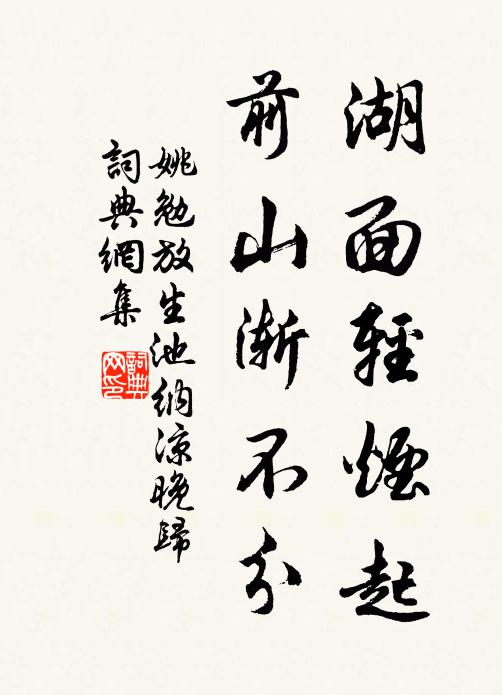 湖面輕煙起
前山漸不分
姚勉放生池納凉晚歸
詞典網集
詞典网印